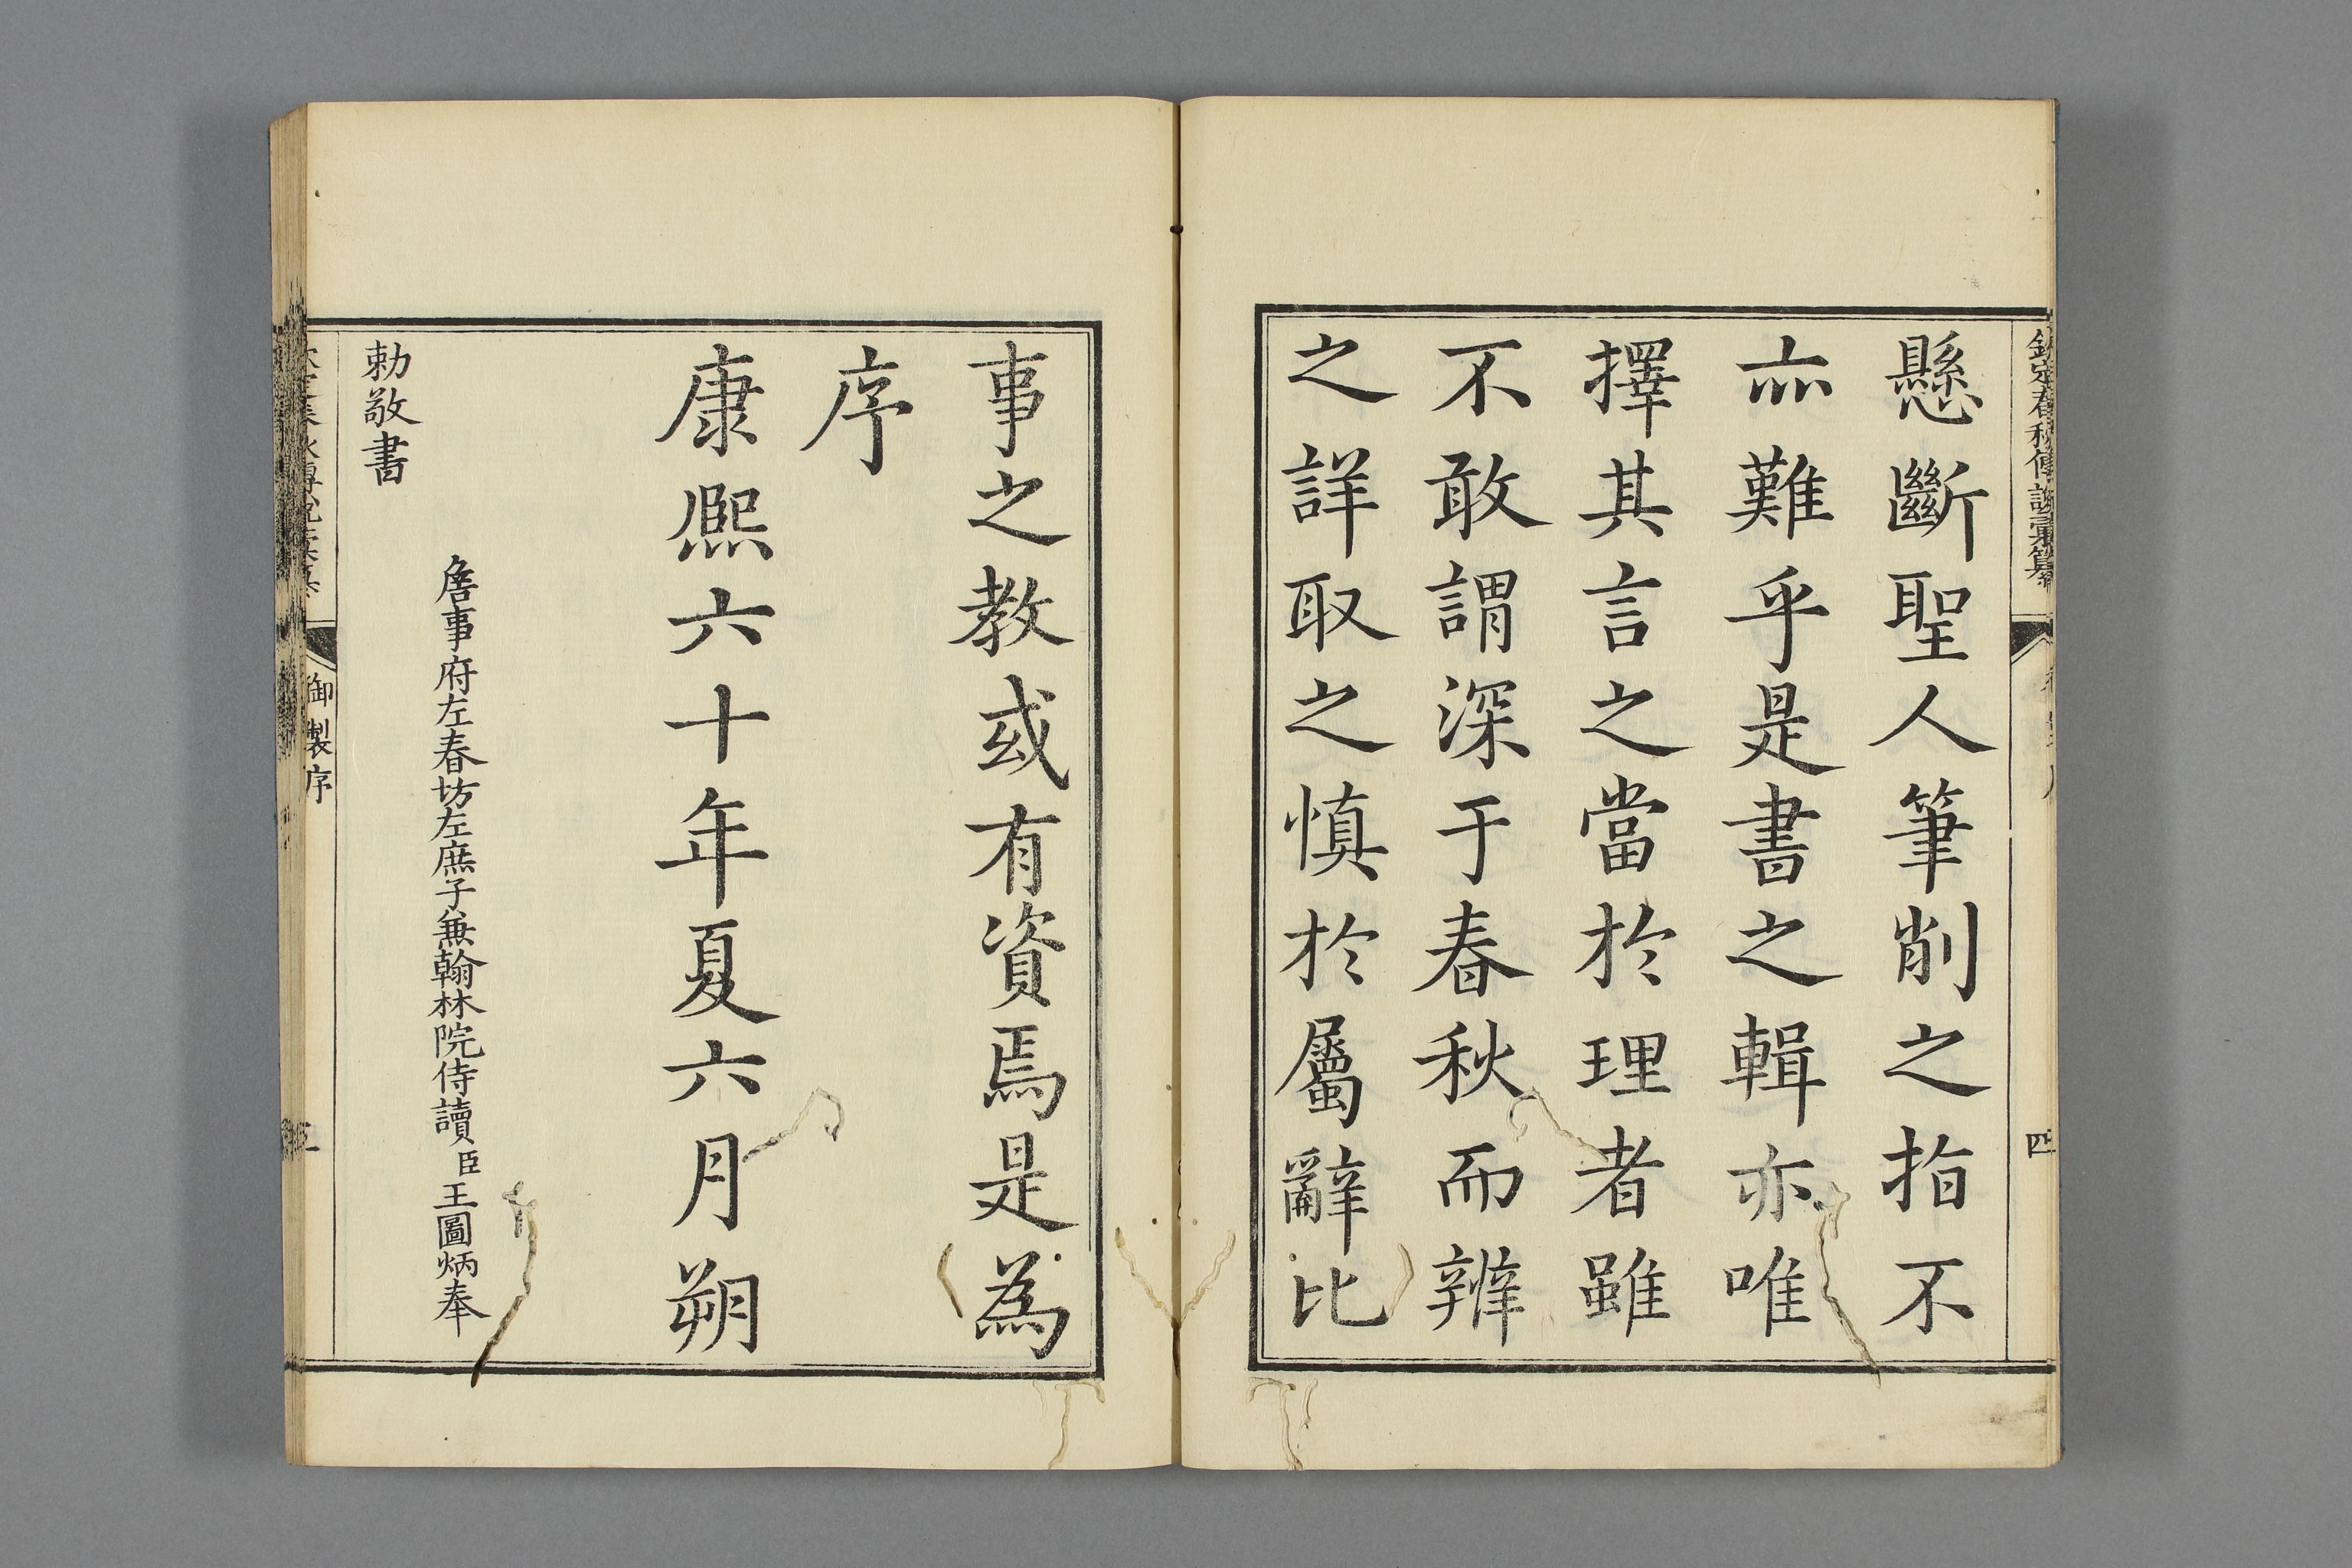 欽定春秋傳說彙纂
四
懸斷聖人筆削之指不
亦難乎是書之輯亦唯
擇其言之當於理者雖
不敢謂深于春秋而辨
之詳取之慎於屬辭比
事之教或有資焉是為
序
康熙六十年夏六月朔
詹事府左春坊左庶子兼翰林院侍讀臣王圖炳奉
勅敬書
御製序